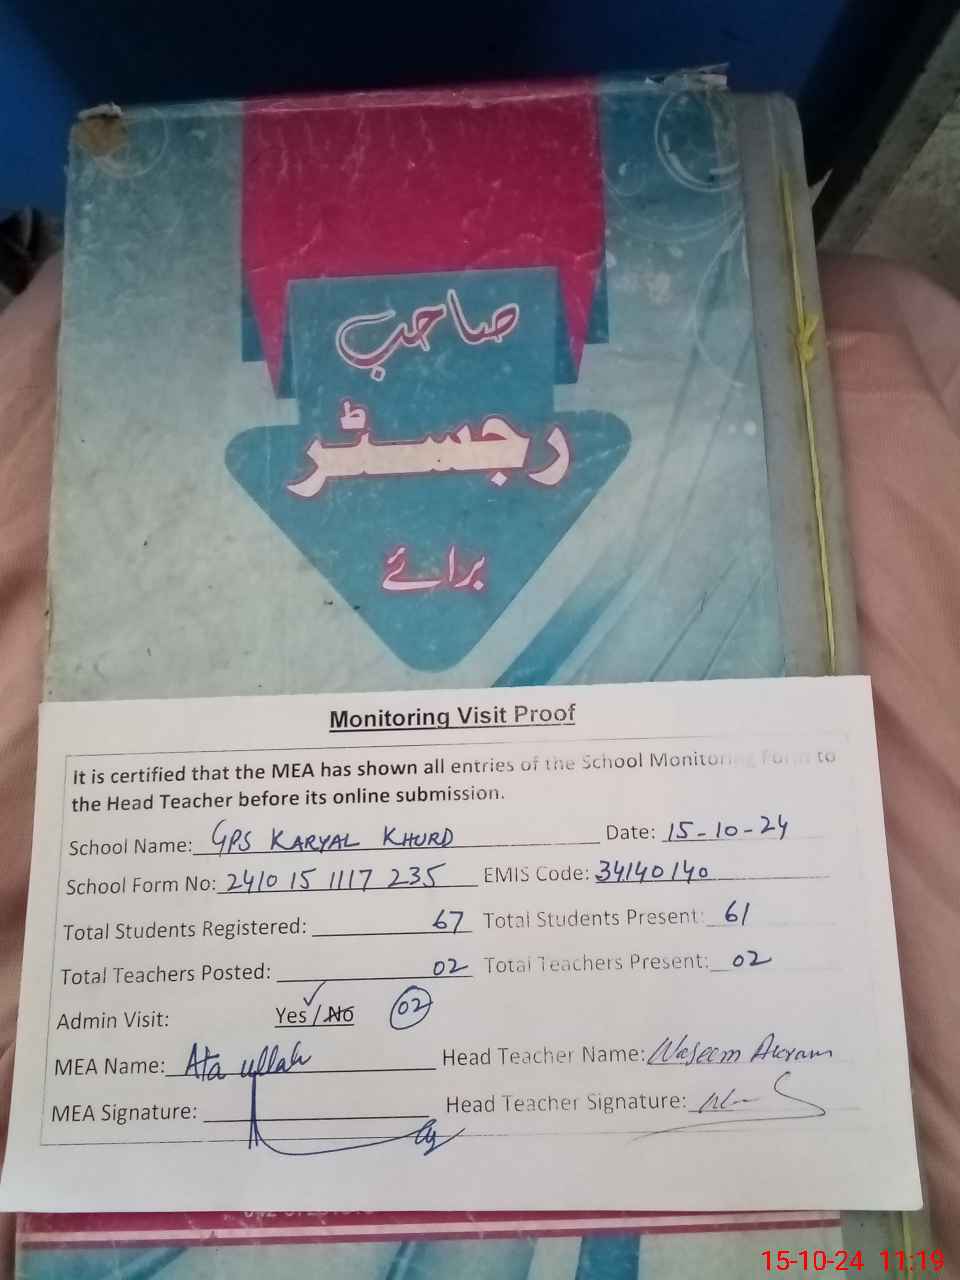 صاحب
رجسٹر
برائے
Monitoring Visit Proof
It is certified that the MEA has shown all entries of the School Monitoring Form to
the Head Teacher before its online submission.
School Name: GPS KARYAL KHURD Date: 15-10-24
School Form No: 2410 15 1117 235 EMIS Code: 34140140
Total Students Registered: 67 Total Students Present: 61
Total Teachers Posted: 02 Total Teachers Present: 02
Admin Visit: Yes / No 02
MEA Name: Ata ullah Head Teacher Name: Waseem Akram
MEA Signature: Head Teacher Signature:
15-10-24 11:19